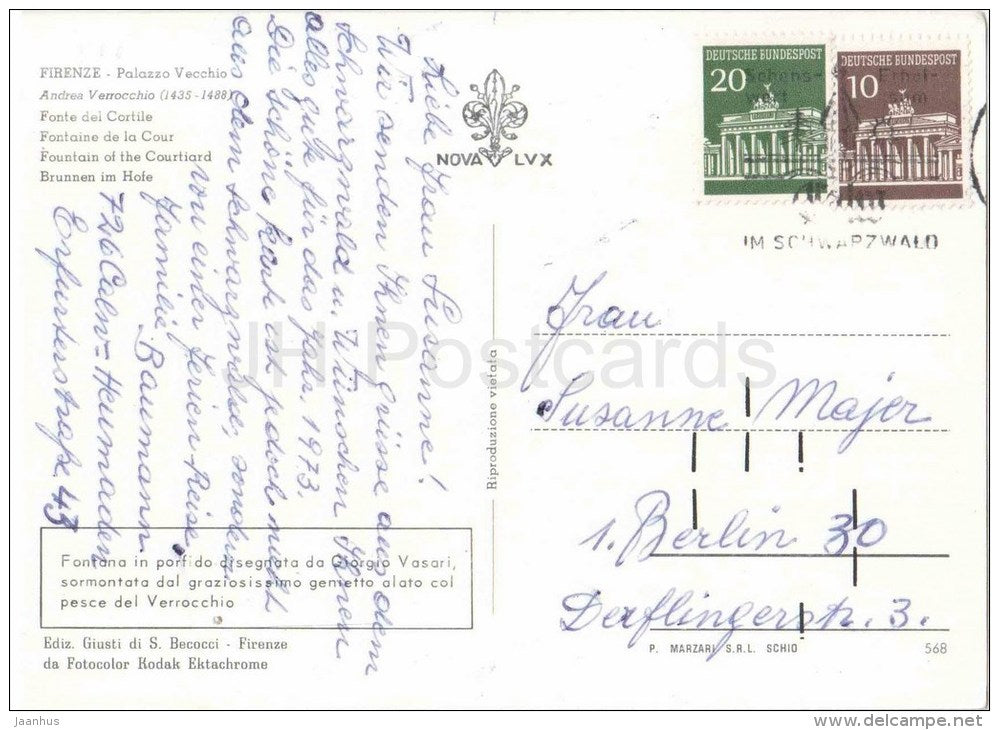 FIRENZE - Palazzo Vecchio
Andrea Verrocchio (1435-1488)
Fonte del Cortile
Fontaine de la Cour
Fountain of the Courtiard
Brunnen im Hofe
NOVA LVX
DEUTSCHE BUNDESPOST
20
DEUTSCHE BUNDESPOST
10
IM SCHWARZWALD
Liebe Frau Susanne!
Wir senden Ihnen Grüsse aus dem
Schwarzwald u. Wünschen Ihnen
alles gute für das Jahr. 1973.
Die schöne Karte ist jedoch nicht
aus dem Schwarzwald, sondern
von einer Ferien-Reise.
Familie Baumann
726 Calw-Heumaden
Erfurterstraße 43
Reproduzione vietata
Frau
Susanne Majer
1. Berlin 30
Derflingerstr. 3.
Fontana in porfido disegnata da Giorgio Vasari,
sormontata dal graziosissimo genietto alato col
pesce del Verrocchio
Ediz. Giusti di S. Becocci - Firenze
da Fotocolor Kodak Ektachrome
P. MARZARI S.R.L. SCHIO
568
JH Postcards
Jaanhus
www.delcampe.net